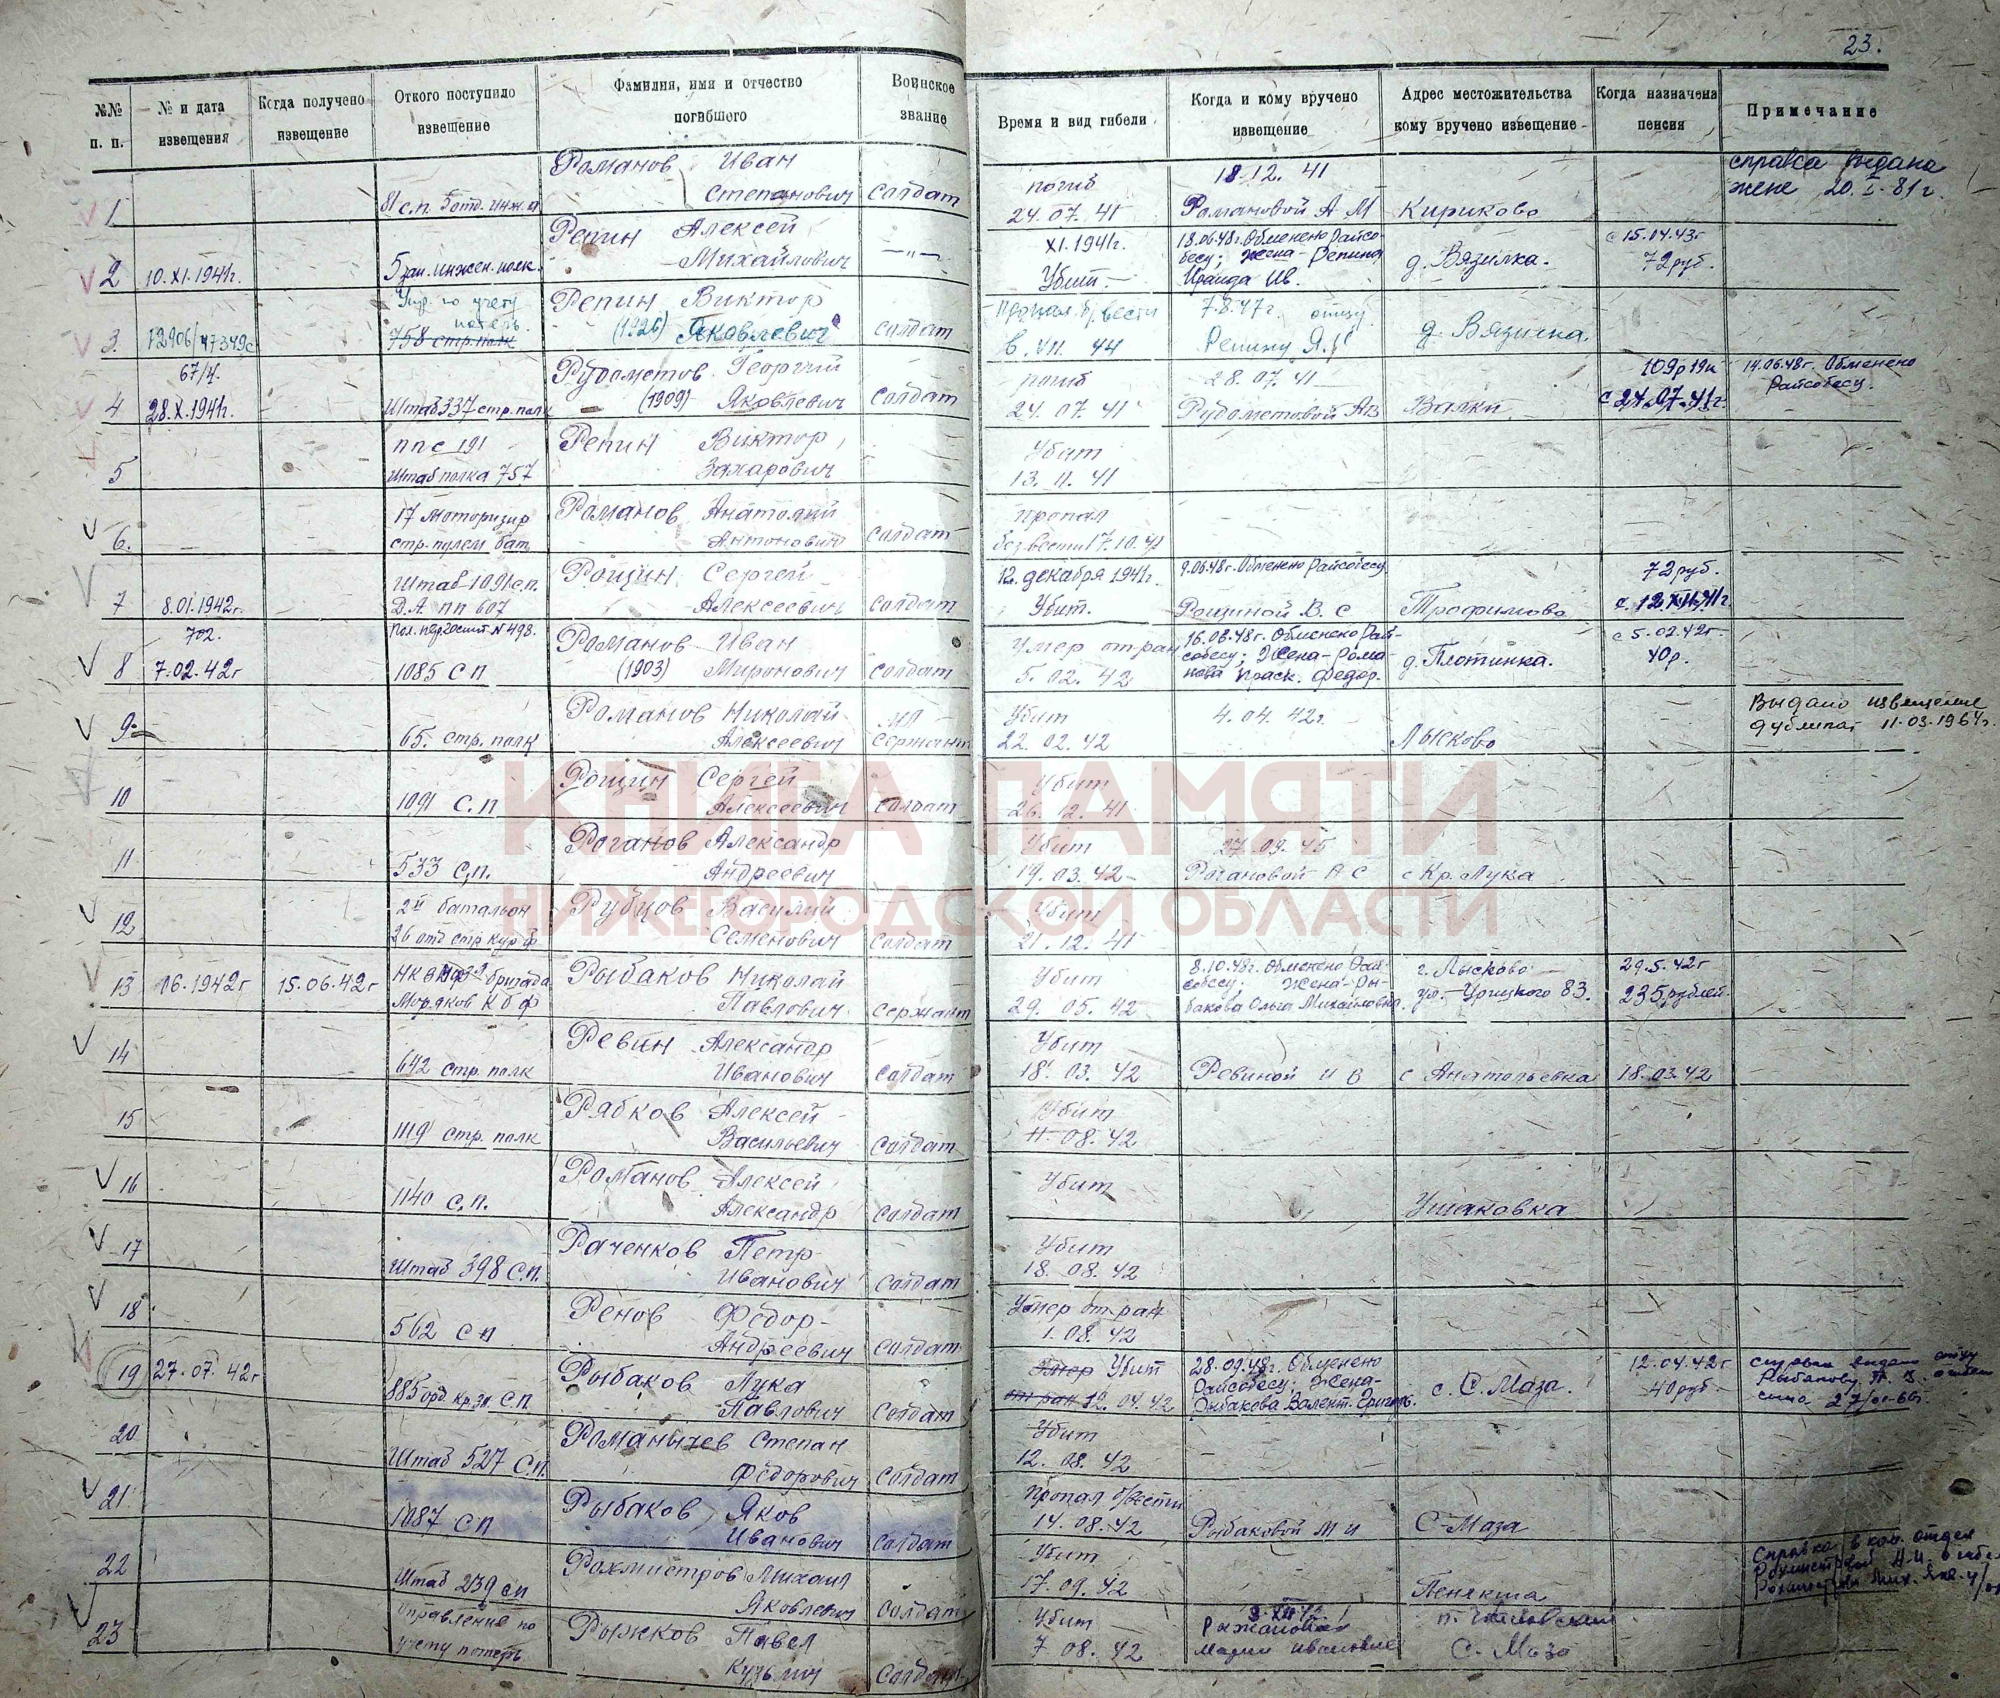 23.
№№ п. п.
№ и дата извещения
Когда получено извещение
Откого поступило извещение
Фамилия, имя и отчество погибшего
Воинское звание
Время и вид гибели
Когда и кому вручено извещение
Адрес местожительства кому вручено извещение
Когда назначена пенсия
Примечание
1 81 с.п. 5 отд. Романов Иван Степанович солдат погиб 24.07.41 18.12.41 Романовой А М Кириково справка выдана жене 20. 81г.
2 10.XI.1941г. 5 зап. инжен. полк. Репин Алексей Михайлович —"— XI.1941г. Убит 18.06.48г. Обменено Райсобесу; Жена-Репина Ираида Ив. д. Вязилка. с 15.04.43г 72 руб.
3. 12906/ Упр. по учету потерь. 758 стр. полк Репин Виктор (1926) Яковлевич солдат Пропал б/вести в VII. 44 7.8.47г. отцу Репину Я. д. Вязилка.
4 67/4. 28.X.1941г. Штаб 337 стр. полк Рудометов Георгий (1909) Яковлевич солдат погиб 24.07.41 28.07.41 Рудометовой Валки 109р 19к с 24.07.41г. 14.06.48г. Обменено Райсобесу.
5 ппс 191 Штаб полка 757 Репин Виктор Захарович Убит 13.11.41
6. 17 моторизир стр. пулем бат Романов Анатолий Антонович солдат пропал без вести 17.10.41
7 8.01.1942г. Штаб 1091 с.п. Д.А. пп 607 Рощин Сергей Алексеевич солдат 12. декабря 1941г. Убит. 9.06.48г. Обменено Райсобесу Рощиной В. С Трофимово 72 руб. с. 12.XII.41г
8 702. 7.02.42г № 498. 1085 СП Романов Иван (1903) Миронович солдат Умер от ран 5.02.42 16.08.48г. Обменено Райсобесу; Жена-Романова Праск. Федор. д. Плотинка. с 5.02.42г. 40р.
9 65. стр. полк Романов Николай Алексеевич мл сержант Убит 22.02.42 4.04.42г. Лысково Выдано извещение дубликат 11.03.1967г.
10 1091 С.П Рощин Сергей Алексеевич солдат Убит 26.12.41
11 533 с.п. Роганов Александр Андреевич Убит 19.03.42 27.09.45 Рогановой А С с Кр. Лука
12 2й батальон 26 отд стр Рубцов Василий Семенович солдат Убит 21.12.41
13 06.1942г 15.06.42г бригада Моряков К б ф Рыбаков Николай Павлович сержант Убит 29.05.42 8.10.48г. Обменено Райсобесу; Жена-Рыбакова Ольга Михайловна. г. Лысково ул. Урицкого 83. 29.5.42г 235 рублей.
14 642 стр. полк Ревин Александр Иванович солдат Убит 18.03.42 Ревиной И В с Анатольевка 18.03.42
15 1119 стр. полк Рябков Алексей Васильевич солдат Убит 11.08.42
16 1140 с.п. Романов Алексей Александр солдат Убит Ушаковка
17 Штаб 398 с.п. Раченков Петр Иванович солдат Убит 18.08.42
18 562 с п Ренов Федор Андреевич солдат Умер от ран 1.08.42
19 27.07.42г 885 орд. Кр. Зн. СП Рыбаков Лука Павлович солдат Умер Убит от ран 12.04.42 28.09.48г. Обменено Райсобесу. Жена-Рыбакова Валент. Григорь. с. С. Маза. 12.04.42г 40 руб. справка выдана отцу Рыбакову
20 Штаб 527 с.п. Романычев Степан Федорович солдат Убит 12.08.42
21 1087 СП Рыбаков Яков Иванович солдат Пропал б/вести 14.08.42 Рыбаковой М И С-Маза
22 Штаб 239 сп Рохмистров Михаил Яковлевич солдат Убит 17.09.42 Пенякша Справка
23 Управление по учету потерь Рыжков Павел Кузьмич солдат Убит 7 08.42 Марии Ивановне С. Маза
КНИГА ПАМЯТИ
НИЖЕГОРОДСКОЙ ОБЛАСТИ